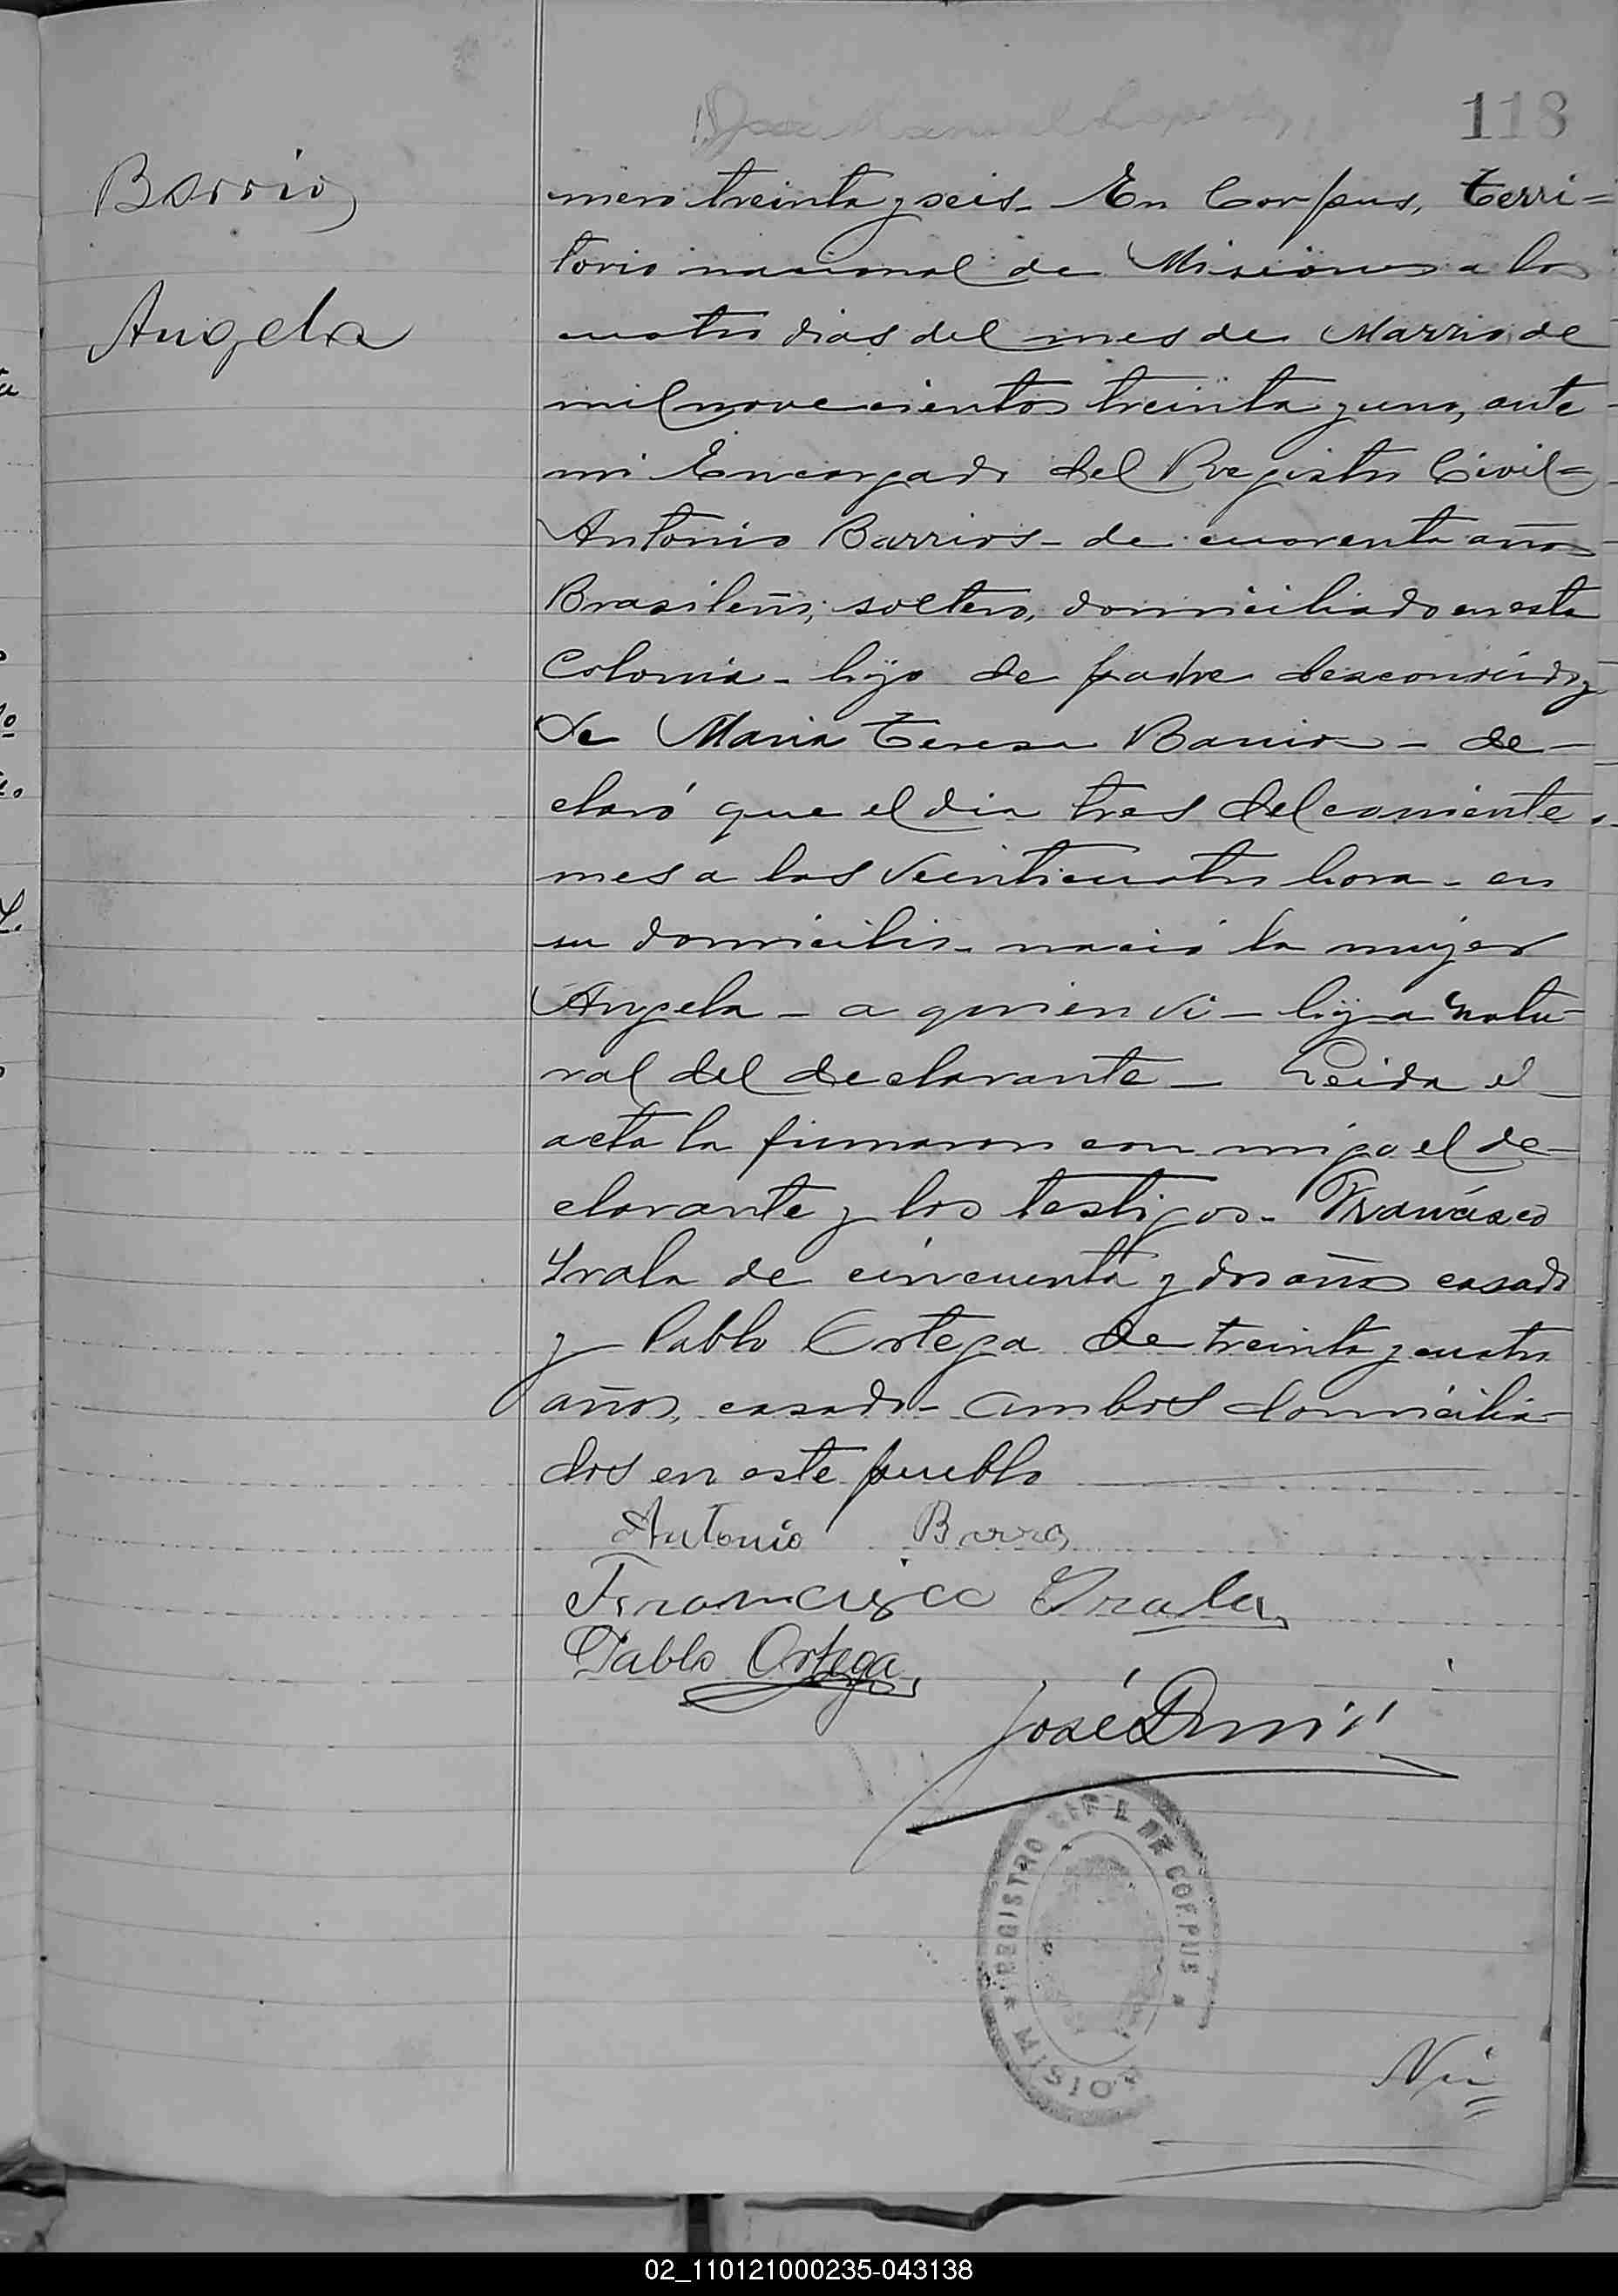 118
Barrio
Angela
mero treinta y seis - En Corpus, Terri=
torio nacional de Misiones a los
cuatro dias del mes de Marzo de
mil novecientos treinta y uno, ante
mi Encargado del Registro Civil=
Antonio Barrios - de cuarenta años
Brasileño, soltero, domiciliado en esta
Colonia - hijo de padre desconocido y
de Maria Teresa Barrios - de-
claró que el dia tres del corriente
mes a las veinticuatro hora - en
su domicilio - nació la mujer
Angela - a quien vi - hija natu-
ral del declarante - Leida el
acta la firmaron con migo el de-
clarante y los testigos - Francisco
Yrala de cincuenta y dos años casado
y Pablo Ortega de treinta y cuatro
años, casado - ambos domicilia-
dos en este pueblo
Antonio Barro
Francisco Yrala
Pablo Ortega
José
REGISTRO CIVIL DE CORPUS
MISIONES
Nú=
02_110121000235-043138